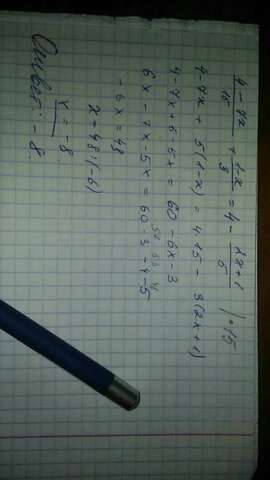 (4-7x)/15 + (1-x)/3 = 4 - (2x+1)/5 |·15
4-7x + 5(1-x) = 4·15 - 3(2x+1)
4-7x+5-5x = 60-6x-3
6x - 7x - 5x = 60-3-4-5
-6x = 48
x = 48:(-6)
x = -8
Ответ: -8.